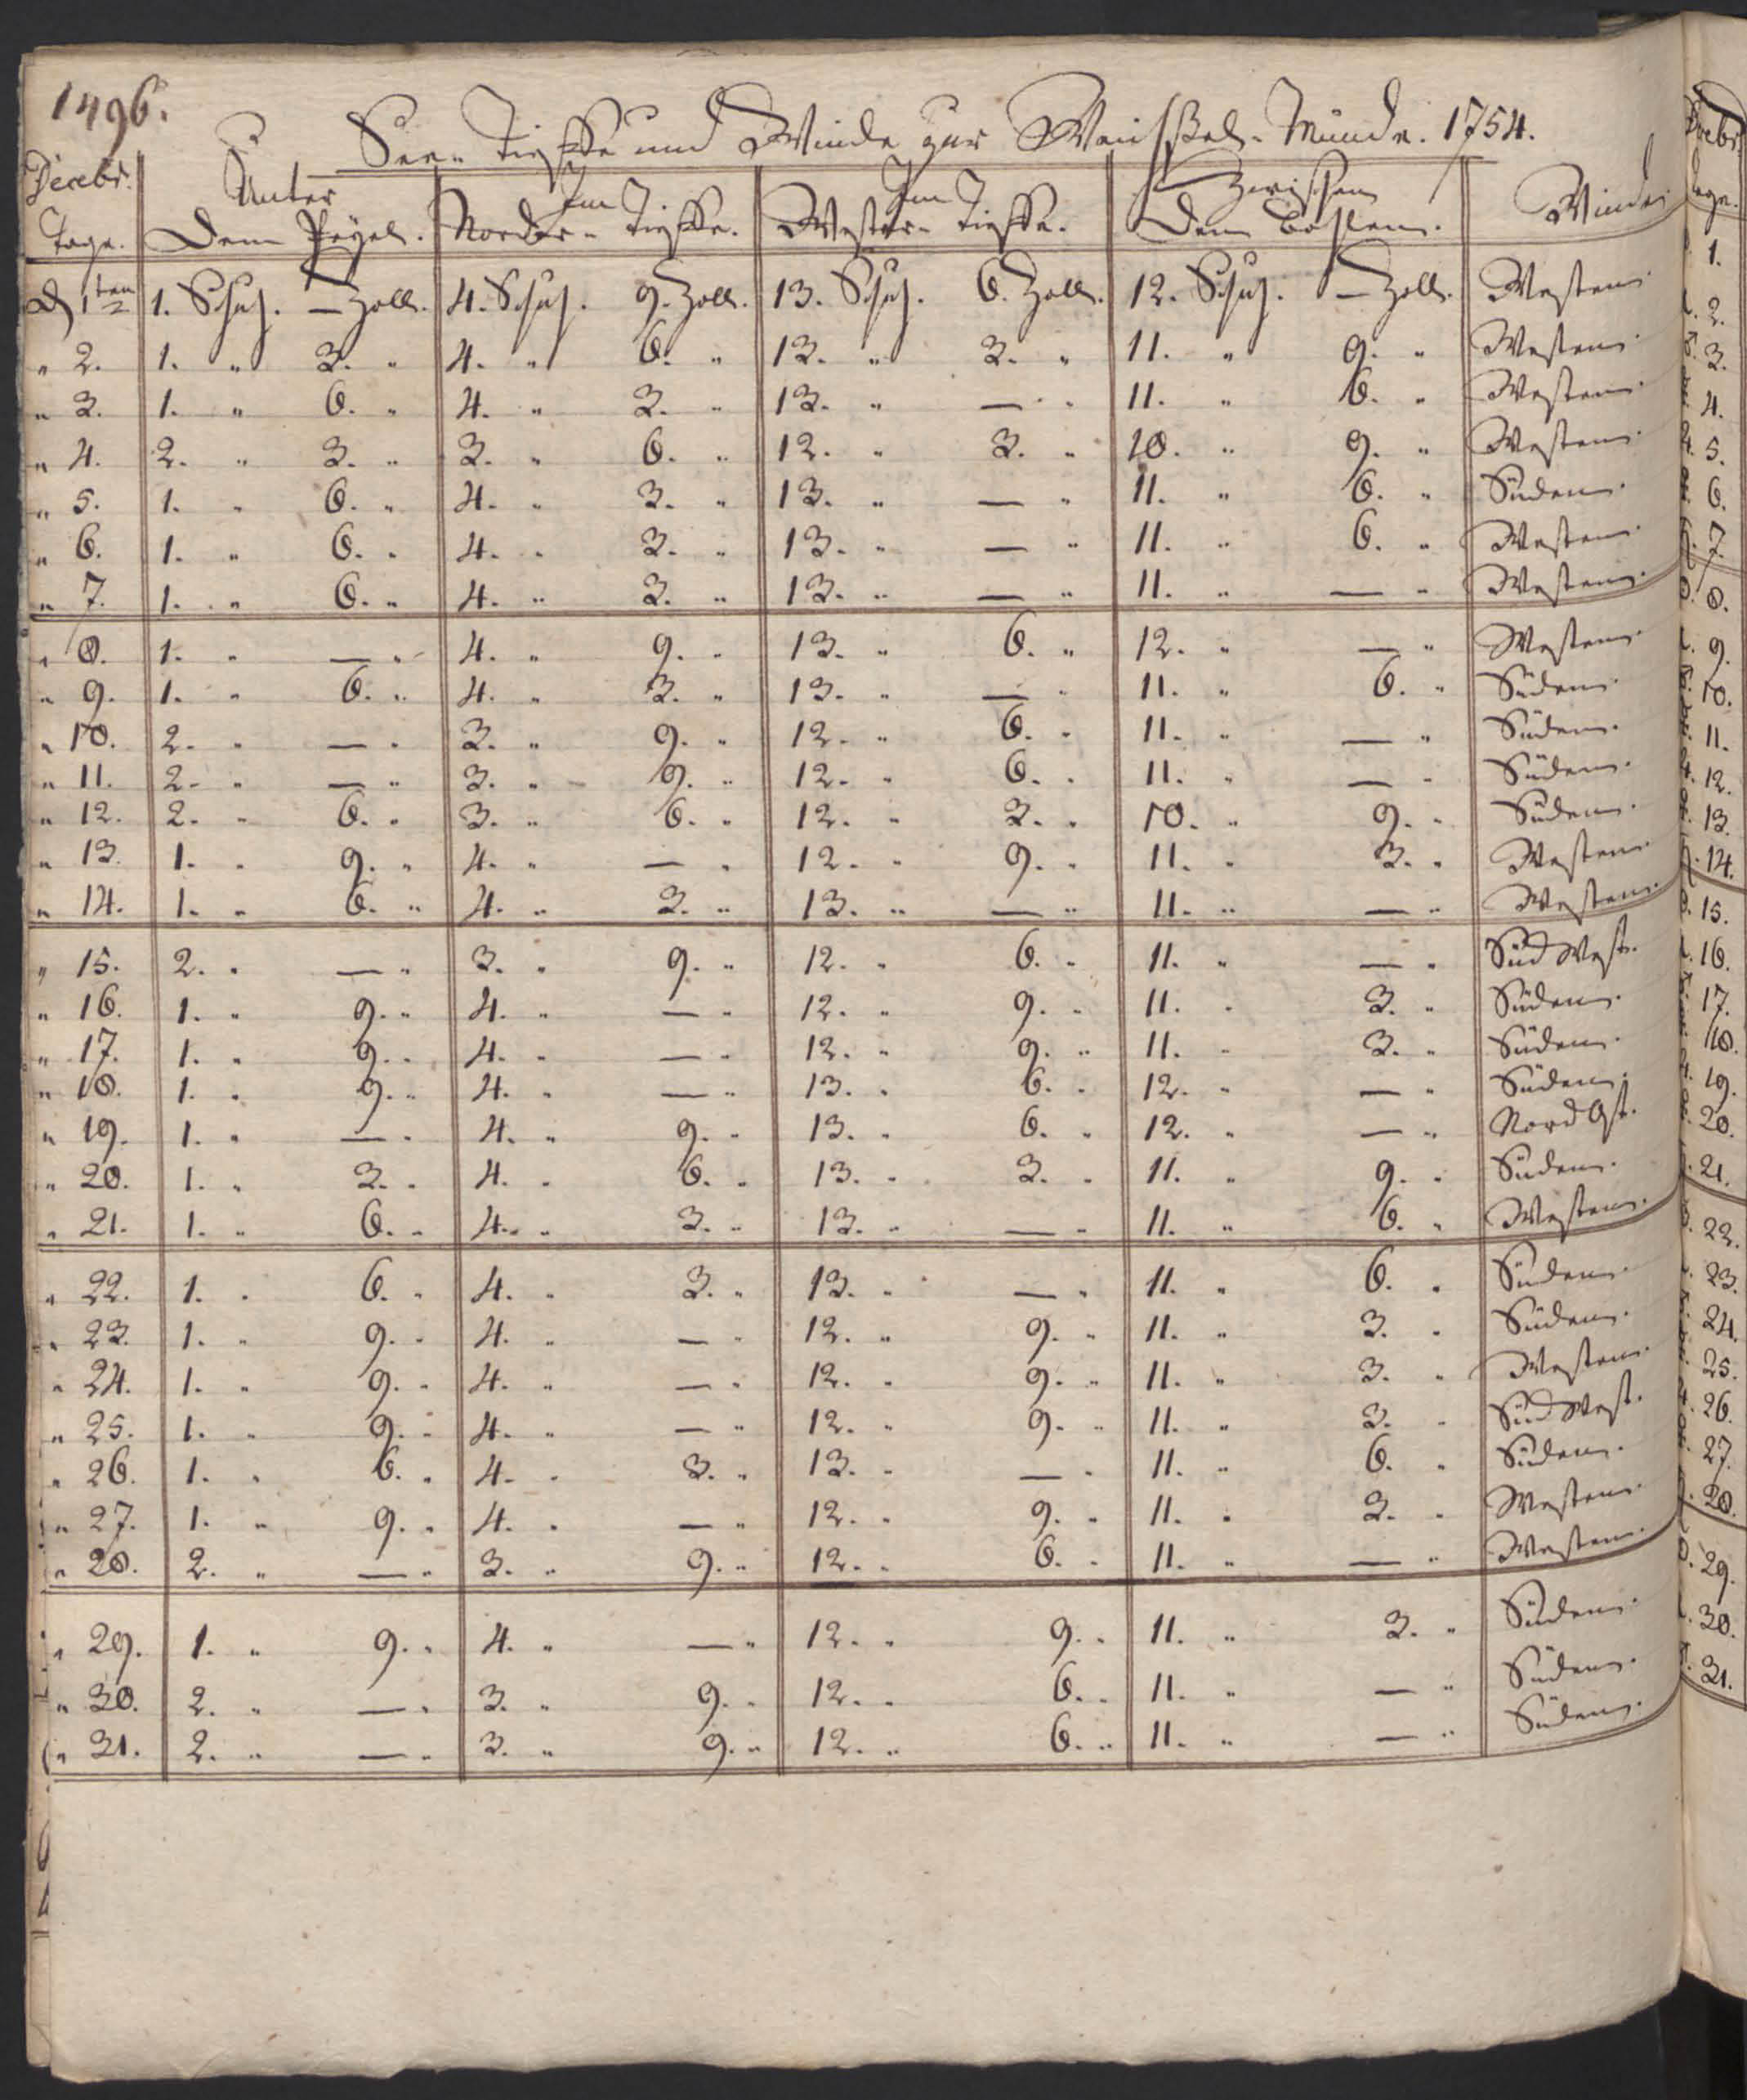 1496.
See- Tieffe und Winde zur Weichßel- Münde. 1754.
Decebr. Unter Im Im Zwischen
Tage. Dem Pegel. Norder- Tieffe. Wester- Tieffe. Den Winde
D 1ten 1. Schuh. — Zoll. 4. Schuh. 9. Zoll. 13. Schuh. 6. Zoll. 12. Schuh. — Zoll. Westen
" 2. 1. " 3. " 4. " 6. " 13. " 3. " 11. " 9. " Westen.
" 3. 1. " 6. " 4. " 3. " 13. " — " 11. " 6. " Westen.
" 4. 2. " 3. " 3. " 6. " 12. " 3. " 10. " 9. " Westen.
" 5. 1. " 6. " 4. " 3. " 13. " — " 11. " 6. " Süden.
" 6. 1. " 6. " 4. " 3. " 13. " — " 11. " 6. " Westen.
" 7. 1. " 6. " 4. " 3. " 13. " — " 11. " — " Westen.
" 8. 1. " — " 4. " 9. " 13. " 6. " 12. " — " Westen.
" 9. 1. " 6. " 4. " 3. " 13. " — " 11. " 6. " Süden.
" 10. 2. " — " 3. " 9. " 12. " 6. " 11. " — " Süden.
" 11. 2. " — " 3. " 9. " 12. " 6. " 11. " — " Süden.
" 12. 2. " 6. " 3. " 6. " 12. " 3. " 10. " 9. " Süden.
" 13. 1. " 9. " 4. " — " 12. " 9. " 11. " 3. " Westen.
" 14. 1. " 6. " 4. " 3. " 13. " — " 11. " — " Westen.
" 15. 2. " — " 3. " 9. " 12. " 6. " 11. " — " Süd West.
" 16. 1. " 9. " 4. " — " 12. " 9. " 11. " 3. " Süden.
" 17. 1. " 9. " 4. " — " 12. " 9. " 11. " 3. " Süden.
" 18. 1. " 9. " 4. " — " 13. " 6. " 12. " — " Süden.
" 19. 1. " — " 4. " 9. " 13. " 6. " 12. " — " Nord Ost.
" 20. 1. " 3. " 4. " 6. " 13. " 3. " 11. " 9. " Süden.
" 21. 1. " 6. " 4. " 3. " 13. " — " 11. " 6. " Westen.
" 22. 1. " 6. " 4. " 3. " 13. " — " 11. " 6. " Süden.
" 23. 1. " 9. " 4. " — " 12. " 9. " 11. " 3. " Süden.
" 24. 1. " 9. " 4. " — " 12. " 9. " 11. " 3. " Westen.
" 25. 1. " 9. " 4. " — " 12. " 9. " 11. " 3. " Süd West.
" 26. 1. " 6. " 4. " 3. " 13. " — " 11. " 6. " Süden.
" 27. 1. " 9. " 4. " — " 12. " 9. " 11. " 3. " Westen.
" 28. 2. " — " 3. " 9. " 12. " 6. " 11. " — " Westen.
" 29. 1. " 9. " 4. " — " 12. " 9. " 11. " 3. " Süden.
" 30. 2. " — " 3. " 9. " 12. " 6. " 11. " — " Süden.
" 31. 2. " — " 3. " 9. " 12. " 6. " 11. " — " Süden.
1.
2.
3.
4.
5.
6.
7.
8.
9.
10.
11.
12.
13.
14.
15.
16.
17.
18.
19.
20.
21.
22.
23.
24.
25.
26.
27.
28.
29.
30.
31.